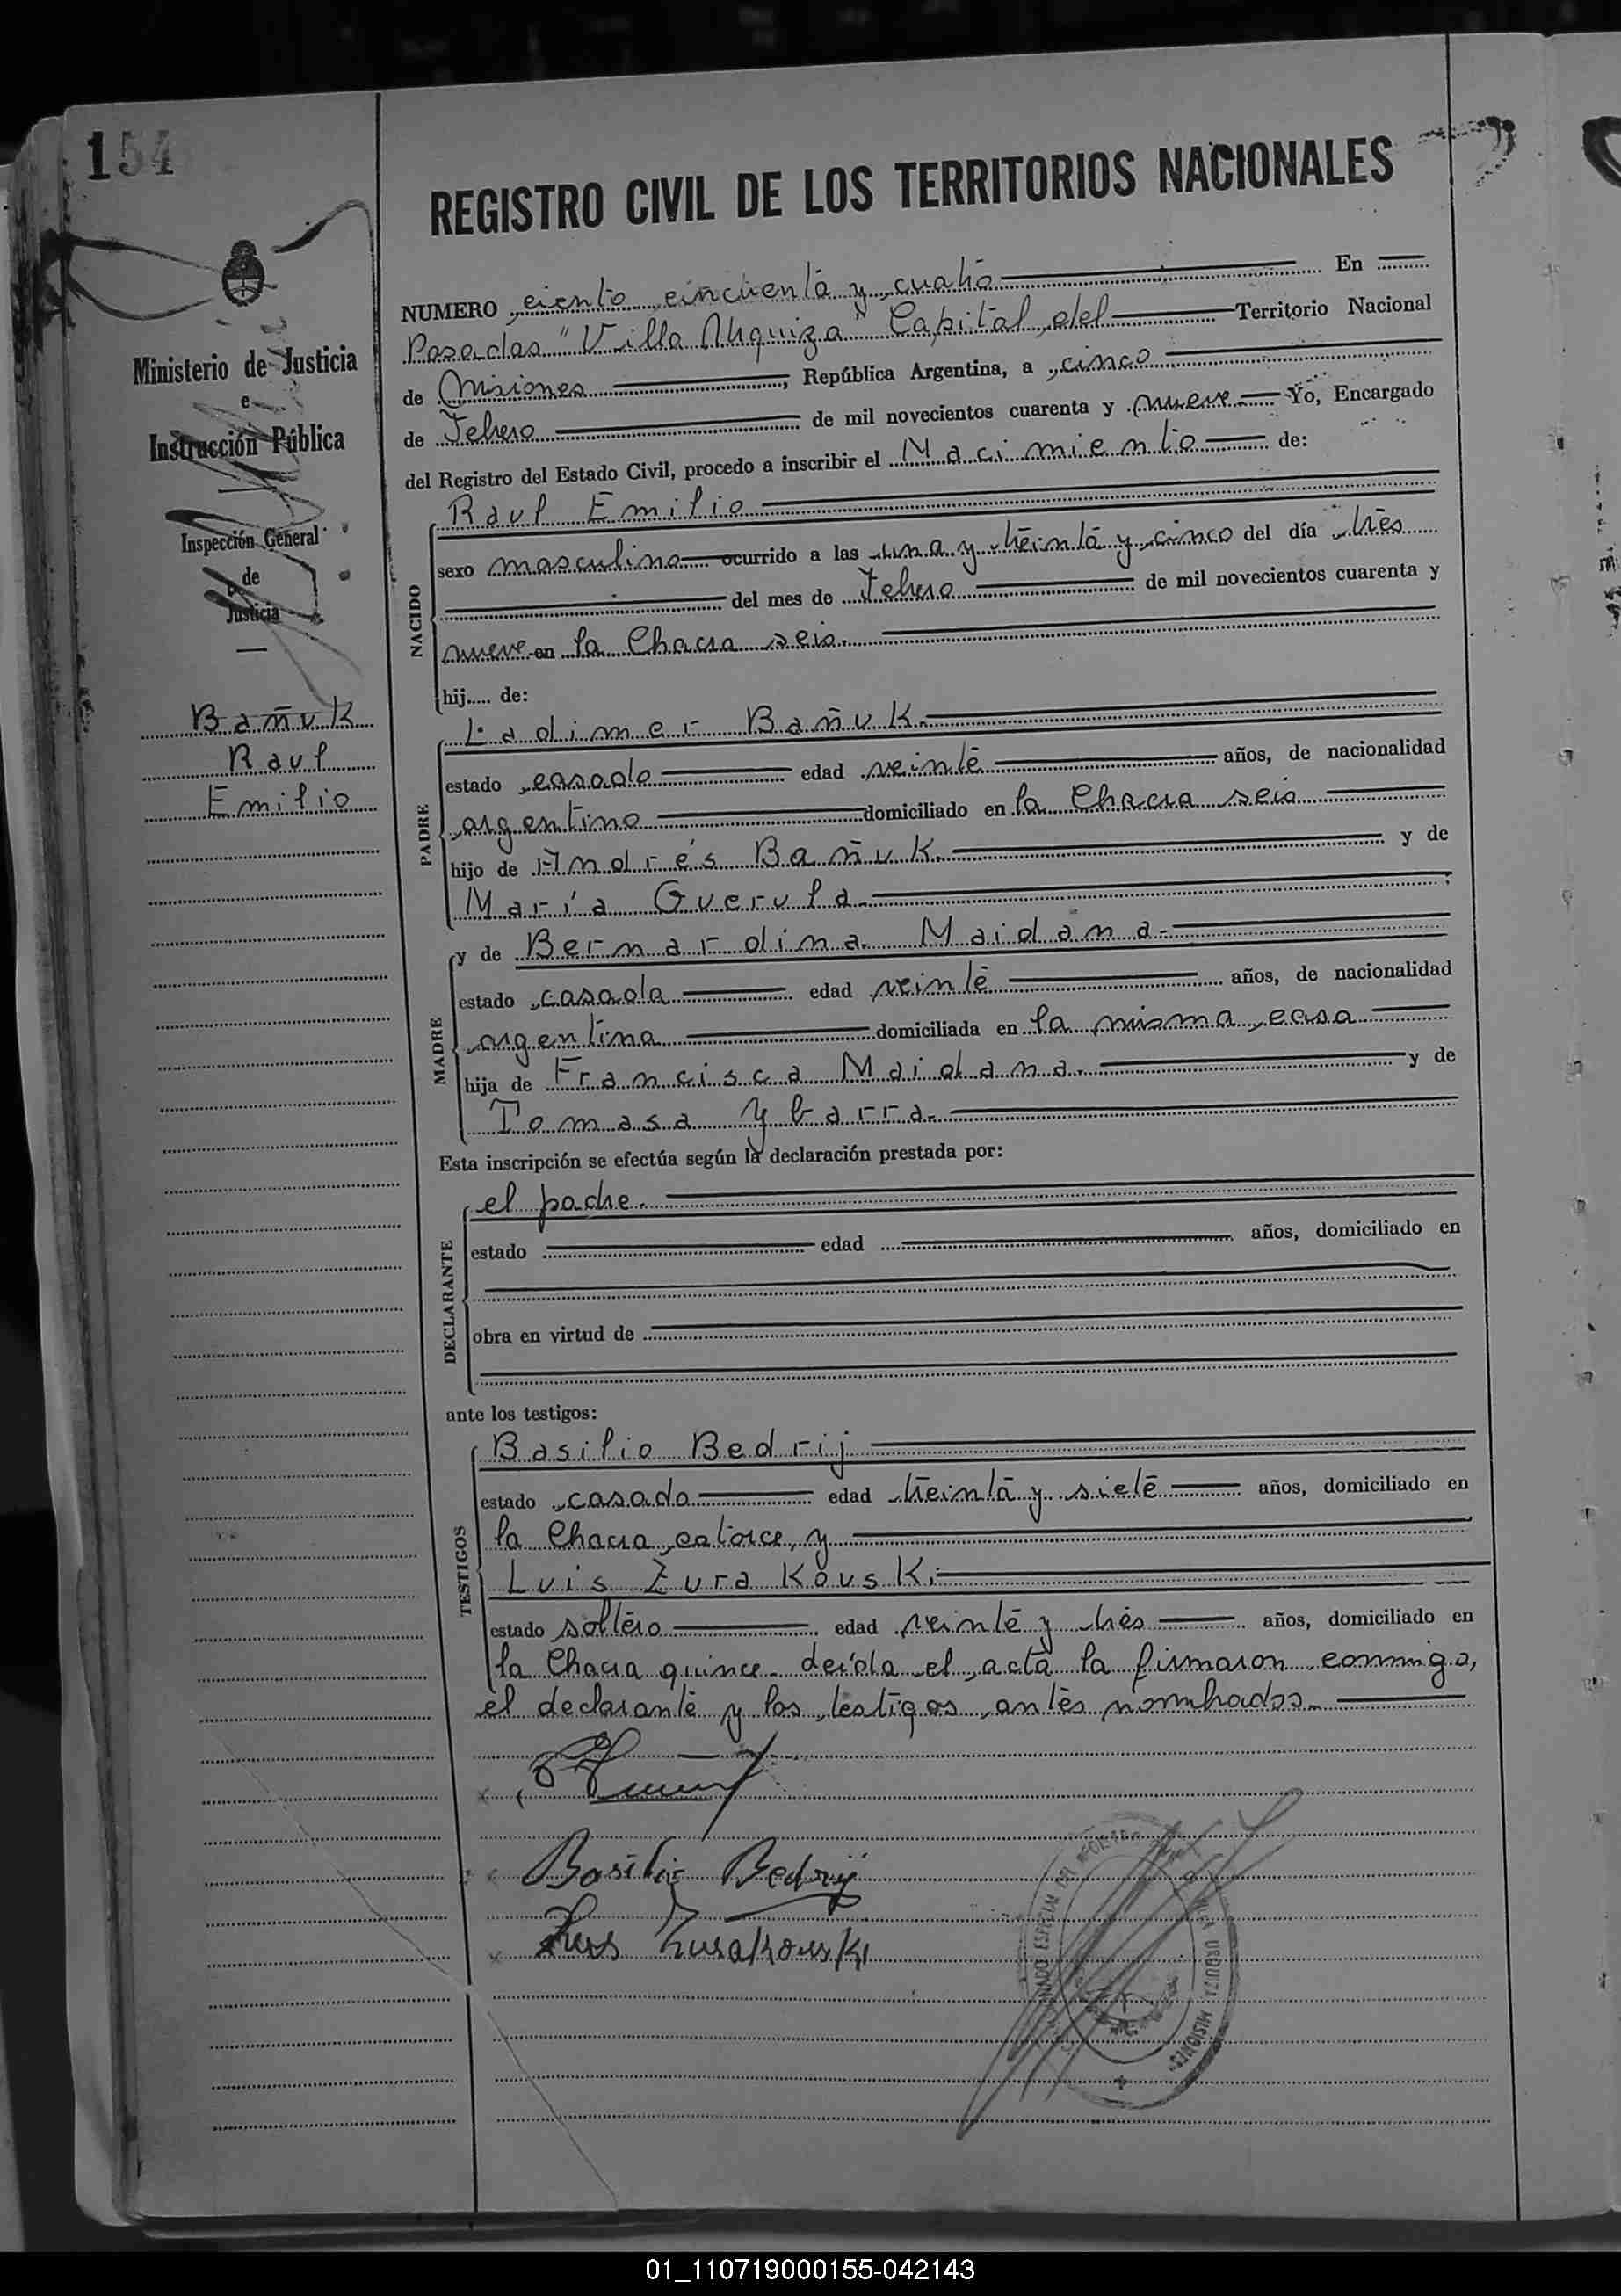 154
REGISTRO CIVIL DE LOS TERRITORIOS NACIONALES
Ministerio de Justicia
e
Instrucción Pública
Inspección General
de
Justicia
Bañuk
Raul
Emilio
NUMERO ciento cincuenta y cuatro En
Posadas "Villa Urquiza" Capital del Territorio Nacional
de Misiones, República Argentina, a cinco
de Febrero de mil novecientos cuarenta y nueve Yo, Encargado
del Registro del Estado Civil, procedo a inscribir el Nacimiento de:
NACIDO
Raul Emilio
sexo masculino ocurrido a las una y treinta y cinco del día tres
del mes de Febrero de mil novecientos cuarenta y
nueve en la Chacra seis.
hij..... de:
PADRE
Ladimer Bañuk.
estado casado edad veinte años, de nacionalidad
argentino domiciliado en la Chacra seis
hijo de Andrés Bañuk. y de
María Guerula.
MADRE
y de Bernardina Maidana.
estado casada edad veinte años, de nacionalidad
argentina domiciliada en la misma casa
hija de Francisca Maidana. y de
Tomasa Ybarra.
Esta inscripción se efectúa según la declaración prestada por:
DECLARANTE
el padre.
estado edad años, domiciliado en
obra en virtud de
ante los testigos:
TESTIGOS
Basilio Bedrij
estado casado edad treinta y siete años, domiciliado en
la Chacra catorce, y
Luis Zurakouski
estado soltero edad veinte y tres años, domiciliado en
la Chacra quince. Leída el acta la firmaron conmigo,
el declarante y los testigos antes nombrados.
Basilio Bedrij
Luis Zurakouski
ESPECIAL DEL REGISTRO URQUIZA MISIONES
01_110719000155-042143